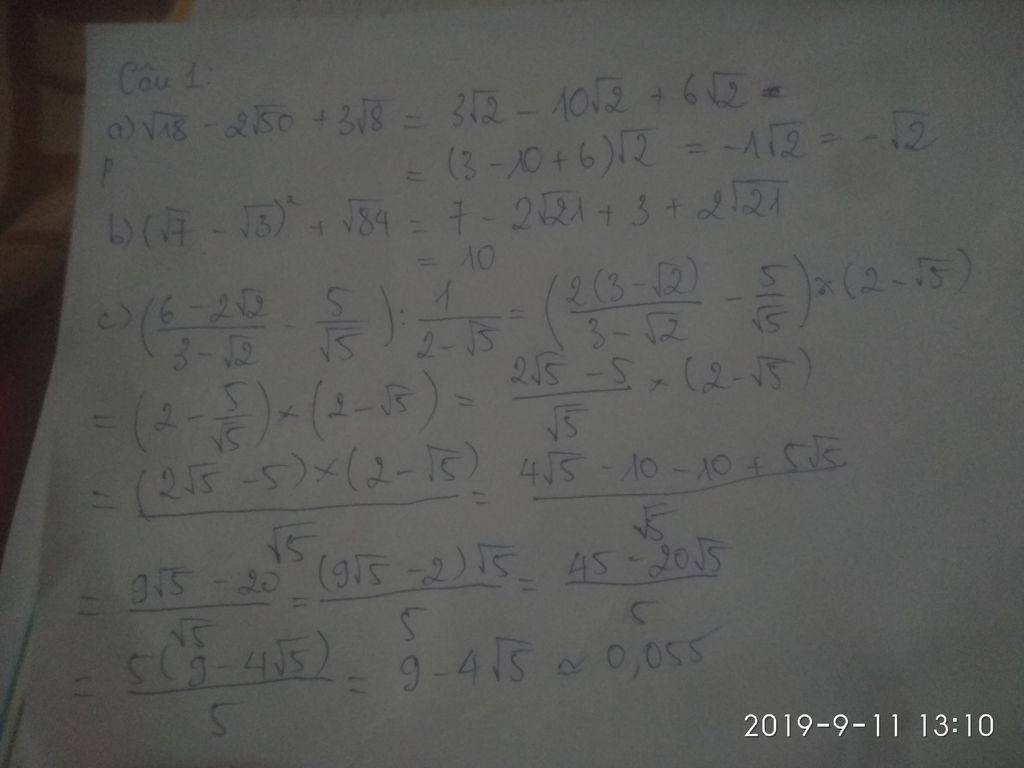 Câu 1:
a) √18 - 2√50 + 3√8 = 3√2 - 10√2 + 6√2
= (3 - 10 + 6)√2 = -1√2 = -√2
b) (√7 - √3)² + √84 = 7 - 2√21 + 3 + 2√21
= 10
c) ((6 - 2√2)/(3 - √2) - 5/√5) : 1/(2 - √5) = (2(3 - √2)/(3 - √2) - 5/√5) × (2 - √5)
= (2 - 5/√5) × (2 - √5) = (2√5 - 5)/√5 × (2 - √5)
= ((2√5 - 5) × (2 - √5))/√5 = (4√5 - 10 - 10 + 5√5)/√5
= (9√5 - 20)/√5 = ((9√5 - 2)√5)/5 = (45 - 20√5)/5
= (5(9 - 4√5))/5 = 9 - 4√5 ≈ 0,055
2019-9-11 13:10